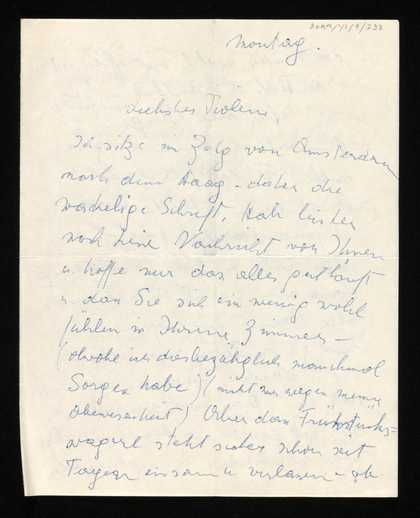 Montag.
Liebstes Violerl,
Ich sitze im Zug von Amsterdam
nach dem Haag – daher die
wackelige Schrift. Hab bisher
noch keine Nachricht von Ihnen
u hoffe nur das alles gut läuft
u dass Sie sich ein wenig wohl
fühlen in Ihrem Zimmer –
(obwohl ich diesbezüglich manchmal
Sorgen habe) (nicht nur wegen meiner
Abwesenheit) Aber das Frühstücks=
wagerl steht sicher schon seit
Tagen einsam u verlassen – ob